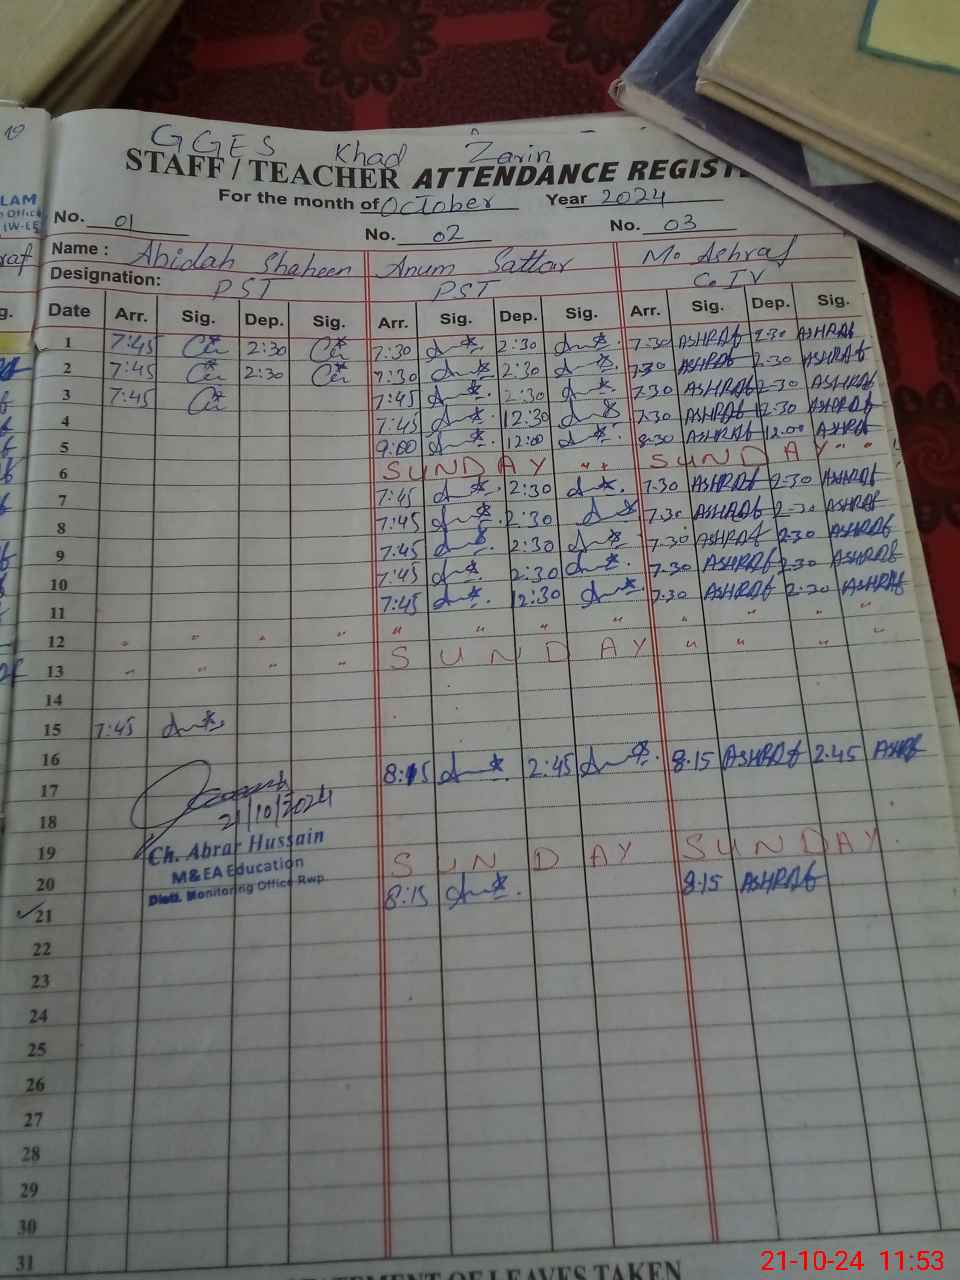 GGES Khad Zarin
STAFF / TEACHER ATTENDANCE REGIST
For the month of October Year 2024
No. 01 No. 02 No. 03
Name : Abidah Shaheen Anum Sattar M. Ashraf
Designation: PST PST C. IV
Date Arr. Sig. Dep. Sig. Arr. Sig. Dep. Sig. Arr. Sig. Dep. Sig.
1 7:45 2:30 7:30 2:30 7:30 ASHRAf 2:30 ASHRAf
2 7:45 2:30 7:30 2:30 7:30 ASHRAf 2:30 ASHRAf
3 7:45 7:45 2:30 7:30 ASHRAf 2:30 ASHRAf
4 7:45 12:30 7:30 ASHRAf 12:30 ASHRAf
5 9:00 12:00 8:30 ASHRAf 12:00 ASHRAf
6 SUNDAY " " SUNDAY " "
7 7:45 2:30 7:30 ASHRAf 2:30 ASHRAf
8 7:45 2:30 7:30 ASHRAf 2:30 ASHRAf
9 7:45 2:30 7:30 ASHRAf 2:30 ASHRAf
10 7:45 2:30 7:30 ASHRAf 2:30 ASHRAf
11 7:45 12:30 7:30 ASHRAf ASHRAf
12 " " " " " " " " " " " "
13 " " " " SUNDAY " " " "
14
15
16 7:45
17 8:15 2:45 8:15 ASHRAf 2:45 ASHRAf
18
19
20 SUNDAY SUNDAY
21 8:15 8:15 ASHRAf
21/10/2024
Ch. Abrar Hussain
M&EA Education
Distt. Monitoring Office Rwp
22
23
24
25
26
27
28
29
30
31
STATEMENT OF LEAVES TAKEN
21-10-24 11:53